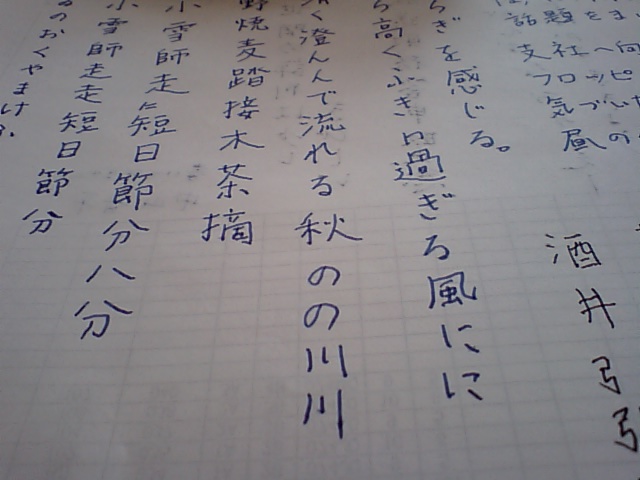 話題をま
支社へ向
フロッピ
気づい
昼の
酒井弓
弓
らぎを感じる。
ら高くふき過ぎる風にに
く澄んんで流れる秋のの川川
野焼麦踏接木茶摘
小雪師走短日節分八分
雪師走走短日節分
るのおくやまけふ